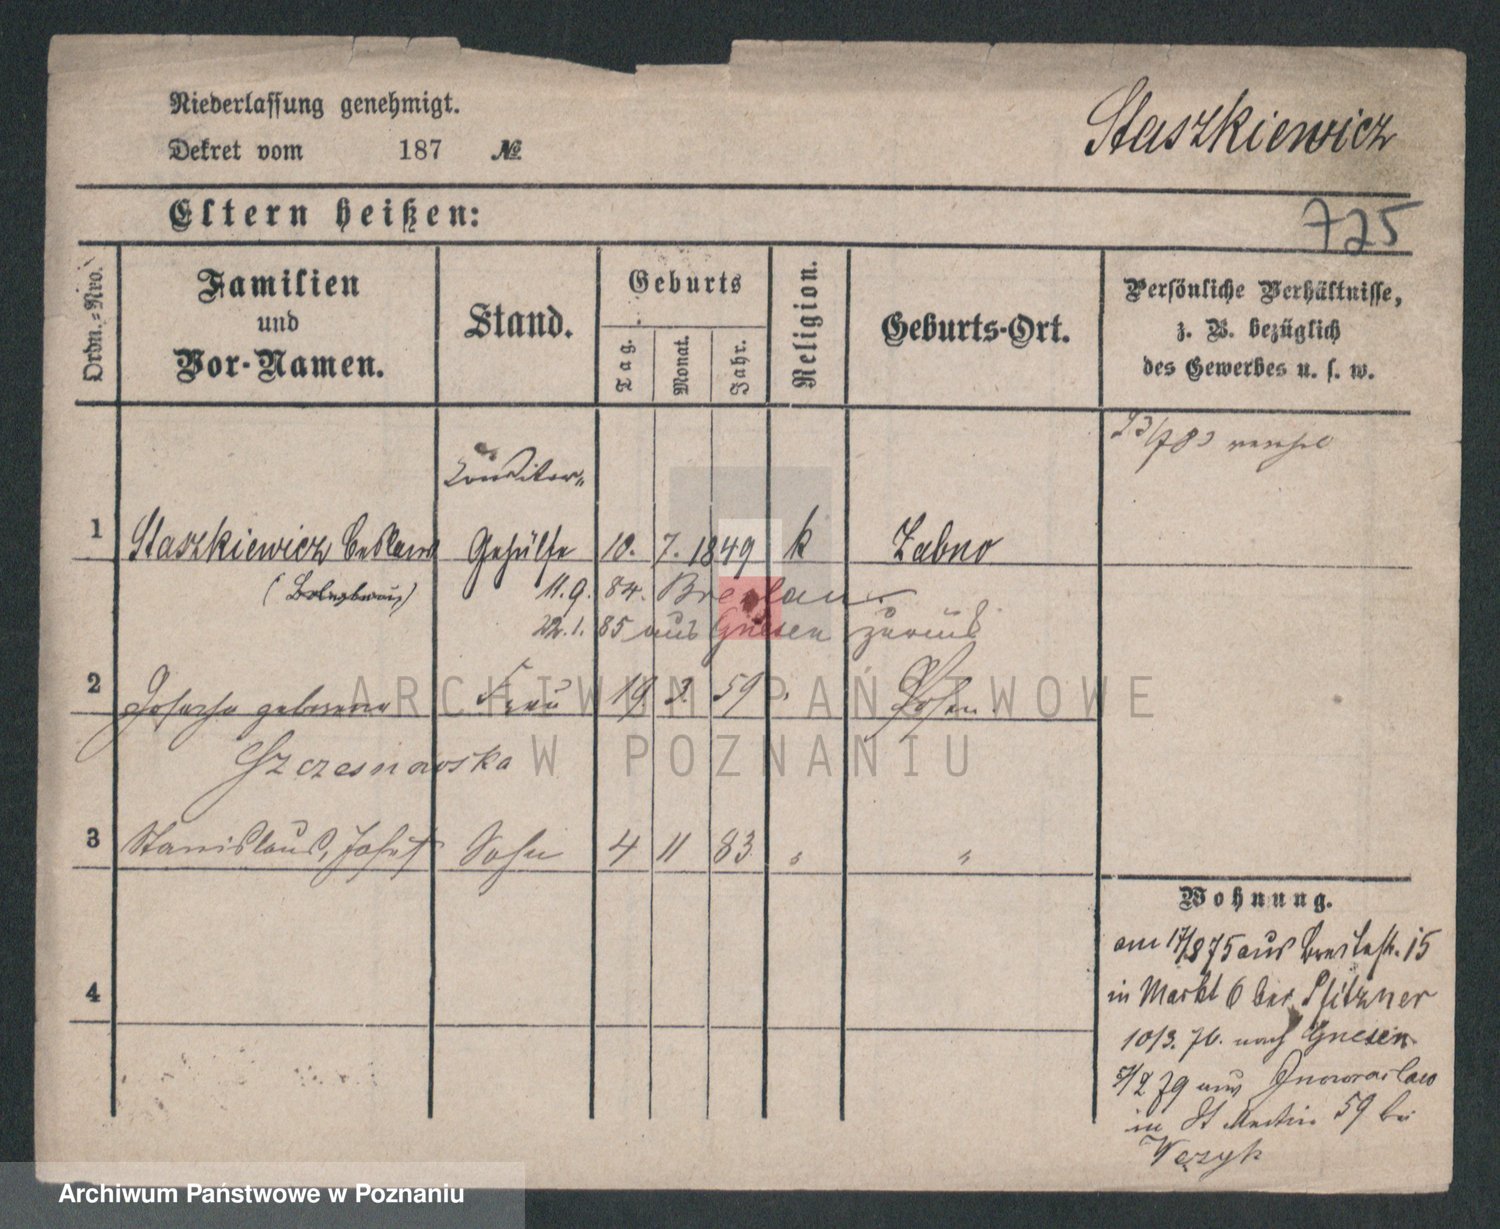 Niederlassung genehmigt.
Dekret vom 187 №
Staszkiewicz
Eltern heißen:
725
Ordn.-Nro.
Familien
und
Vor-Namen.
Stand.
Geburts
Tag.
Monat.
Jahr.
Religion.
Geburts-Ort.
Persönliche Verhältnisse,
z. B. bezüglich
des Gewerbes u. s. w.
Conditor-
1 Staszkiewicz Gehülfe 10. 7. 1849 k Zabno
11.9. 84. Breslau
22.1. 85 aus Gnesen zurück
2 Josepha geborene Frau 19 3. 59 Posen
Szczesnowska
3 Stanislaus, Josef Sohn 4 11 83 " "
4
Wohnung.
am 17/8 75 aus Breitestr. 15
in Markt 6 bei Pfitzner
10/3. 76. nach Gnesen
5/2 79 aus Inowraclaw
in St Martin 59 bei
Węzyk
ARCHIWUM PAŃSTWOWE
W POZNANIU
Archiwum Państwowe w Poznaniu